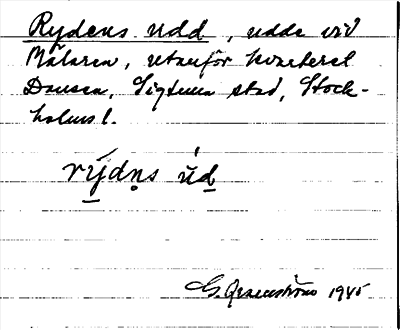 Rydens udd, udde vid
Mälaren, utanför kvarteret
Dansen, Sigtuna stad, Stock-
holms l.
rýdn̥s ùd
G. 1945